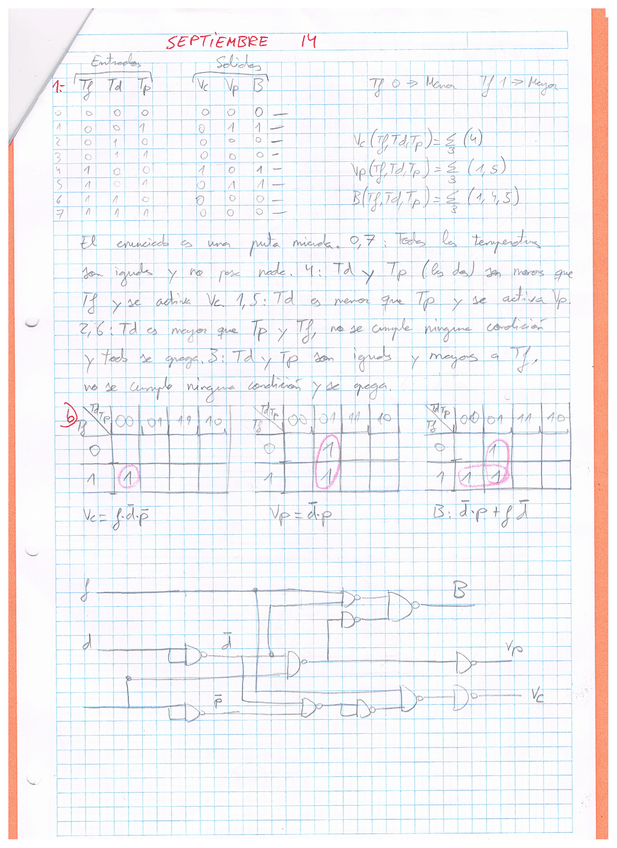 SEPTIEMBRE 14
Entradas Salidas
1.- Tf Td Tp Vc Vp B Tf 0 ⇒ Menor Tf 1 ⇒ Mayor
0 0 0 0 0 0 0 —
1 0 0 1 0 1 1 —
2 0 1 0 0 0 0 —
3 0 1 1 0 0 0 —
4 1 0 0 1 0 1 —
5 1 0 1 0 1 1 —
6 1 1 0 0 0 0 —
7 1 1 1 0 0 0 —
Vc (Tf, Td, Tp) = Σ3 (4)
Vp (Tf, Td, Tp) = Σ3 (1, 5)
B (Tf, Td, Tp) = Σ3 (1, 4, 5)
El enunciado es una puta mierda. 0,7: Todas las temperaturas
son iguales y no pasa nada. 4: Td y Tp (las dos) son menores que
Tf y se activa Vc. 1,5: Td es menor que Tp y se activa Vp.
2,6: Td es mayor que Tp y Tf, no se cumple ninguna condición
y todo se apaga. 3: Td y Tp son iguales y mayores a Tf,
no se cumple ninguna condición y se apaga.
b) Td Tp Tf 00 01 11 10
0
1 1
Vc = f·d̄·p̄
Td Tp Tf 00 01 11 10
0 1
1 1
Vp = d̄·p
Td Tp Tf 00 01 11 10
0 1
1 1 1
B: d̄·p + f·d̄
f B
d d̄ Vp
p̄ Vc